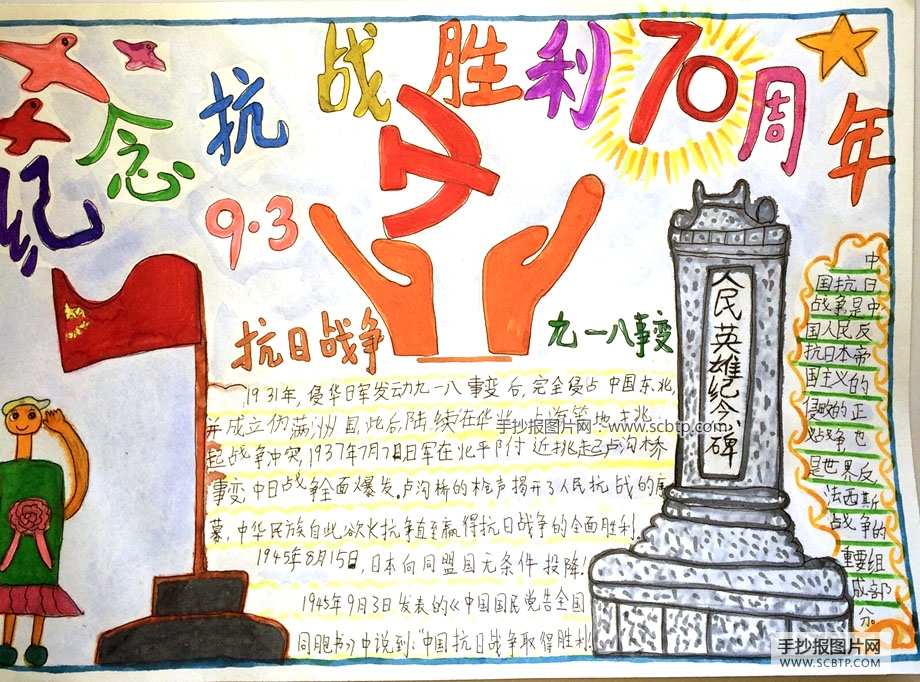 纪念抗战胜利70周年
9·3
抗日战争
九一八事变
1931年,侵华日军发动九一八事变后,完全侵占中国东北,
并成立伪满洲国,此后陆续在华北、上海等地挑
起战争冲突,1937年7月7日日军在北平附近挑起卢沟桥
事变,中日战争全面爆发。卢沟桥的枪声揭开了人民抗战的序
幕,中华民族自此
抗争直至赢得抗日战争的全面胜利!
1945年8月15日,日本向同盟国无条件投降!
1945年9月3日发表的《中国国民党告全国
同胞书》中说到:“中国抗日战争取得胜利
人民英雄纪念碑
中
国抗日
战争是中
国人民反
抗日本帝
国主义的
侵略的正
战争,也
是世界反
法西斯
战争的
重要组
成部
分。
手抄报图片网 www.scbtp.com
手抄报图片网
WWW.SCBTP.COM